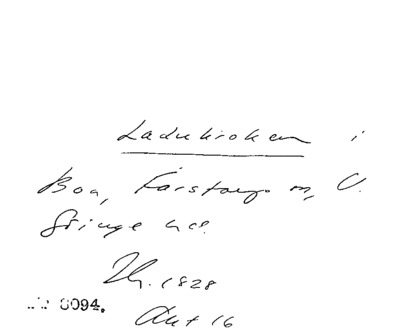 Ladukroken i
Boa, Färstorps m, V.
Göinge hd.
Th. 1828
8094.
Akt 16